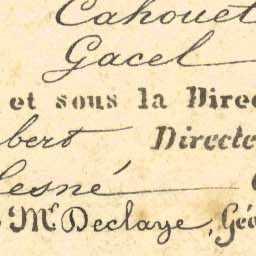 Cahouet
Gacel
et sous la Direc
bert Directe
esné
Mr. Declaye, Géo